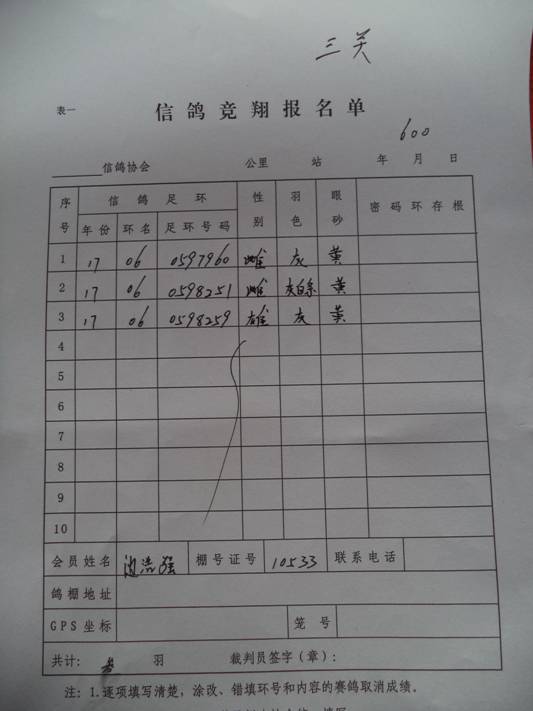 三关
表一
信鸽竞翔报名单
600
信鸽协会 公里 站 年 月 日
序号 信鸽足环 性别 羽色 眼砂 密码环存根
年份 环名 足环号码
1 17 06 0597960 雌 灰 黄
2 17 06 0598251 雌 灰白条 黄
3 17 06 0598259 雄 灰 黄
4
5
6
7
8
9
10
会员姓名 棚号证号 10533 联系电话
鸽棚地址
GPS坐标 笼号
共计: 羽 裁判员签字(章):
注: 1.逐项填写清楚,涂改、错填环号和内容的赛鸽取消成绩。